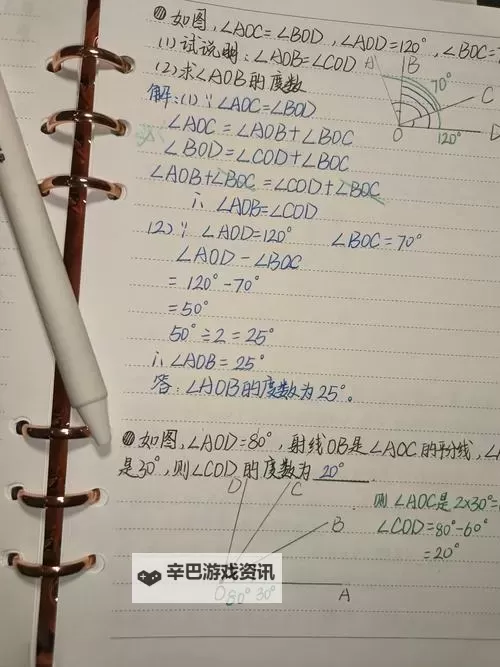 如图,∠AOC=∠BOD,∠AOD=120°,∠BOC=7
(1)试说明:∠AOB=∠COD
(2)求∠AOB的度数
A
B
70°
C
O
120°
D
解:(1)∵∠AOC=∠BOD
∠AOC=∠AOB+∠BOC
∠BOD=∠COD+∠BOC
∠AOB+∠BOC=∠COD+∠BOC
∴∠AOB=∠COD
(2)∵∠AOD=120° ∠BOC=70°
∠AOD-∠BOC
=120°-70°
=50°
50°÷2=25°
∴∠AOB=25°
答:∠AOB的度数为25°。
如图,∠AOD=80°,射线OB是∠AOC的平分线,∠A
是30°,则∠COD的度数为 20°
D
C
B
则∠AOC是2×30°=
∠COD=80°-60°
=20°
辛巴游戏资讯
O
80°
30°
A